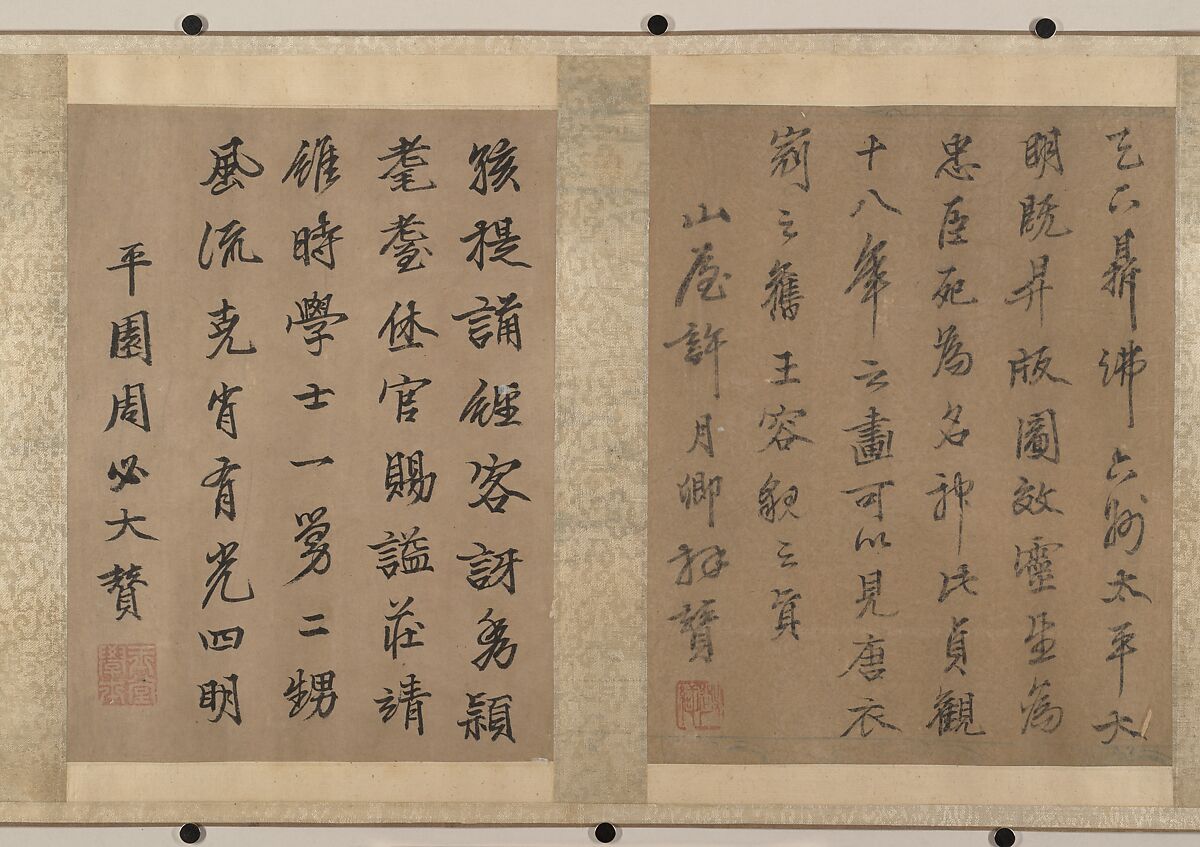 天下鼎沸六州太平大
明既昇版圖效靈生為
忠臣死為名神此貞觀
十八年之畫可以見唐衣
冠之舊王容貌之真
山屋許月卿拜贊
孩提誦經客訝秀穎
耄耋休官賜謚莊靖
維時學士一舅二甥
風流克肖有光四明
平園周必大贊